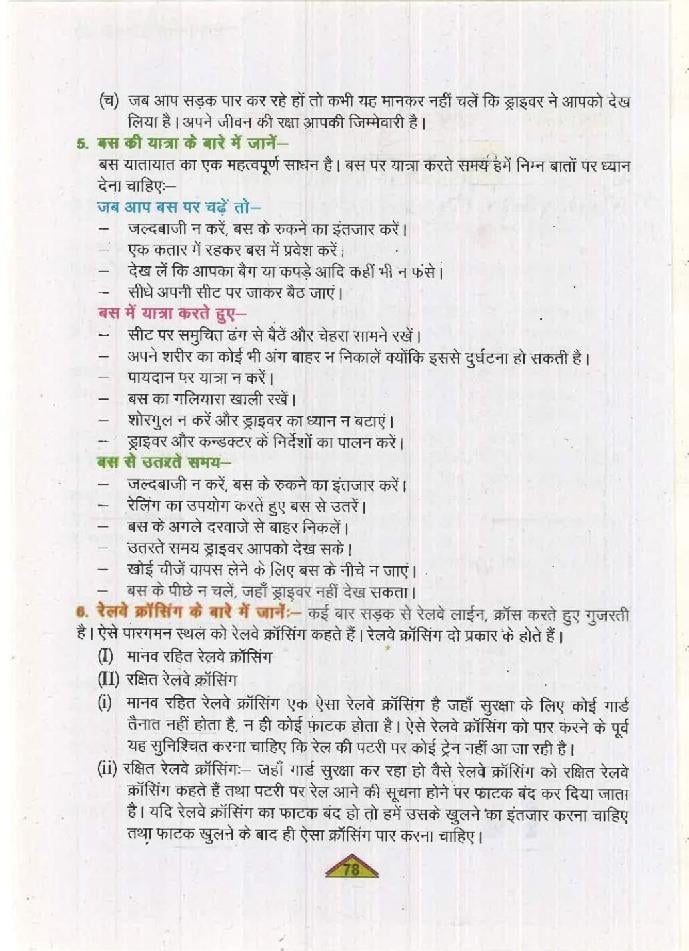 (च) जब आप सड़क पार कर रहे हों तो कभी यह मानकर नहीं चलें कि ड्राइवर ने आपको देख
लिया है। अपने जीवन की रक्षा आपकी जिम्मेवारी है।
5. बस की यात्रा के बारे में जानें–
बस यातायात का एक महत्वपूर्ण साधन है। बस पर यात्रा करते समय हमें निम्न बातों पर ध्यान
देना चाहिएः–
जब आप बस पर चढ़ें तो–
– जल्दबाजी न करें, बस के रुकने का इंतजार करें।
– एक कतार में रहकर बस में प्रवेश करें।
– देख लें कि आपका बैग या कपड़े आदि कहीं भी न फंसे।
– सीधे अपनी सीट पर जाकर बैठ जाएं।
बस में यात्रा करते हुए–
– सीट पर समुचित ढंग से बैठें और चेहरा सामने रखें।
– अपने शरीर का कोई भी अंग बाहर न निकालें क्योंकि इससे दुर्घटना हो सकती है।
– पायदान पर यात्रा न करें।
– बस का गलियारा खाली रखें।
– शोरगुल न करें और ड्राइवर का ध्यान न बटाएं।
– ड्राइवर और कन्डक्टर के निर्देशों का पालन करें।
बस से उतरते समय–
– जल्दबाजी न करें, बस के रुकने का इंतजार करें।
– रेलिंग का उपयोग करते हुए बस से उतरें।
– बस के अगले दरवाजे से बाहर निकलें।
– उतरते समय ड्राइवर आपको देख सके।
– खोई चीजें वापस लेने के लिए बस के नीचे न जाएं।
– बस के पीछे न चलें, जहाँ ड्राइवर नहीं देख सकता।
6. रेलवे क्रॉसिंग के बारे में जानेंः– कई बार सड़क से रेलवे लाईन, क्रॉस करते हुए गुजरती
है। ऐसे पारगमन स्थल को रेलवे क्रॉसिंग कहते हैं। रेलवे क्रॉसिंग दो प्रकार के होते हैं।
(I) मानव रहित रेलवे क्रॉसिंग
(II) रक्षित रेलवे क्रॉसिंग
(i) मानव रहित रेलवे क्रॉसिंग एक ऐसा रेलवे क्रॉसिंग है जहाँ सुरक्षा के लिए कोई गार्ड
तैनात नहीं होता है, न ही कोई फाटक होता है। ऐसे रेलवे क्रॉसिंग को पार करने के पूर्व
यह सुनिश्चित करना चाहिए कि रेल की पटरी पर कोई ट्रेन नहीं आ जा रही है।
(ii) रक्षित रेलवे क्रॉसिंगः– जहाँ गार्ड सुरक्षा कर रहा हो वैसे रेलवे क्रॉसिंग को रक्षित रेलवे
क्रॉसिंग कहते हैं तथा पटरी पर रेल आने की सूचना होने पर फाटक बंद कर दिया जाता
है। यदि रेलवे क्रॉसिंग का फाटक बंद हो तो हमें उसके खुलने का इंतजार करना चाहिए
तथा फाटक खुलने के बाद ही ऐसा क्रॉसिंग पार करना चाहिए।
78